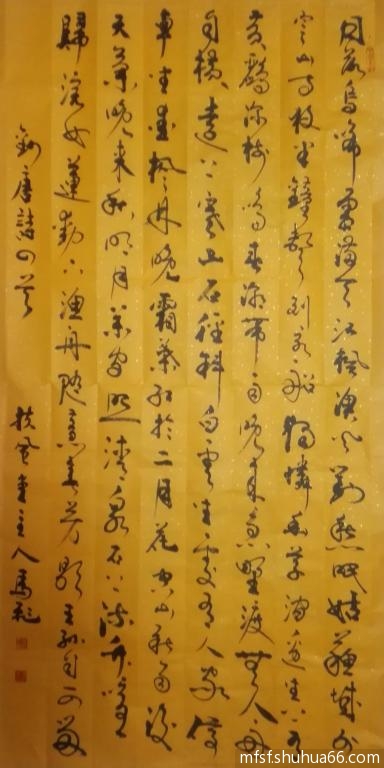 月落烏啼霜滿天江楓漁火對愁眠姑蘇城外
寒山寺夜半鐘聲到客船獨憐幽草澗邊生上有
黃鸝深樹鳴春潮帶雨晚來急野渡無人舟
自橫遠上寒山石徑斜白雲生處有人家停
車坐愛楓林晚霜葉紅於二月花空山新雨後
天氣晚來秋明月松間照清泉石上流竹喧
歸浣女蓮動下漁舟隨意春芳歇王孫自可留
錄唐詩四首 扶風堂主人馬
mfsf.shuhua66.com